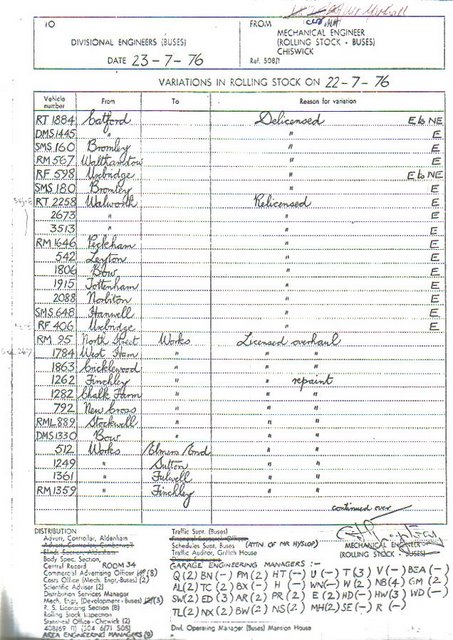 TO
DIVISIONAL ENGINEERS (BUSES)
DATE 23-7-76
FROM
MECHANICAL ENGINEER
(ROLLING STOCK - BUSES)
CHISWICK
Ref. 508/1
VARIATIONS IN ROLLING STOCK ON 22-7-76
Vehicle number From To Reason for variation
RT 1884 Catford Delicensed E to NE
DMS 1445 " " E
SMS 160 Bromley " E
RM 567 Walthamstow " E
RF 598 Uxbridge " E to NE
SMS 180 Bromley " E
RT 2258 Walworth Relicensed E
2673 " " E
3513 " " E
RM 1646 Peckham " E
542 Leyton " E
1806 Bow " E
1915 Tottenham " E
2088 Norbiton " E
SMS 648 Hanwell " E
RF 406 Uxbridge " E
RM 95 North Street Works Licensed overhaul
1784 West Ham " " "
1863 Cricklewood " " "
1262 Finchley " " repaint
1282 Chalk Farm " " "
792 New Cross " " "
RML 889 Stockwell " " "
DMS 1330 Bow " " "
512 Works Elmers End " "
1249 " Sutton " "
1361 " Fulwell " "
RM 1359 " Finchley " "
continued over
MECHANICAL ENGINEER
(ROLLING STOCK - BUSES)
DISTRIBUTION
Advert. Controller, Aldenham
Body Spec. Section
Central Record ROOM 34
Commercial Advertising Officer (8)
Costs Office (Mech. Engr.-Buses) (2)
Scientific Adviser (2)
Distribution Services Manager
Mech. Engr. Development - Buses (3)
R. S. Licensing Section (8)
Rolling Stock Inspection
Statistical Office - Chiswick (2)
AREA ENGINEERING MANAGERS (9)
Traffic Supt. (Buses)
Schedules Supt. Buses (ATTN OF MR HYSLOP)
Traffic Auditor, Griffith House
GARAGE ENGINEERING MANAGERS :-
Q (2) BN (-) PM (2) HT (-) U (-) T (3) V (-) BEA (-)
AL (2) TC (2) BX (-) H (-) WN (-) W (2) NB (4) GM (2)
SW (2) ED (3) AR (2) PR (2) E (2) HD (-) HW (3) WD (-)
TL (2) NX (2) BW (2) NS (2) MH (2) SE (-) R (-)
Divl. Operating Manager (Buses) Mansion House